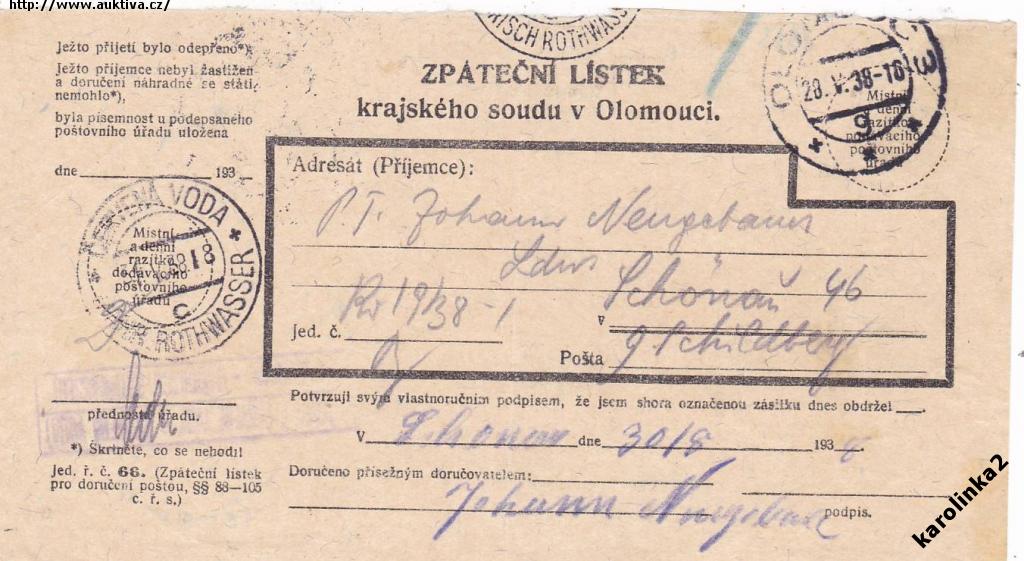 http://www.auktiva.cz/
Ježto přijetí bylo odepřeno*),
Ježto příjemce nebyl zastižen
a doručení náhradné se státi
nemohlo*),
byla písemnost u podepsaného
poštovního úřadu uložena
dne 193
ČERVENÁ VODA
Místní
a denní
razítko
dodávacího
poštovního
úřadu
18
C
ROTHWASSER
přednosta úřadu.
*) Škrtněte, co se nehodí!
Jed. ř. č. 68. (Zpáteční lístek
pro doručení poštou, §§ 88—105
c. ř. s.)
ISCH ROTHWASSER
ZPÁTEČNÍ LÍSTEK
krajského soudu v Olomouci.
OLOMOUC 3
28. V. 38-18
Místní
a denní
razítko
podávacího
poštovního
úřadu
Adresát (Příjemce):
P.T. Johann Neugebauer
Schönau 46
v
19/38-1
Jed. č.
Pošta Schildberg
Potvrzuji svým vlastnoručním podpisem, že jsem shora označenou zásilku dnes obdržel
V Schönau dne 30/5 1938
Doručeno přísežným doručovatelem:
Johann Neugebauer
podpis.
karolinka2